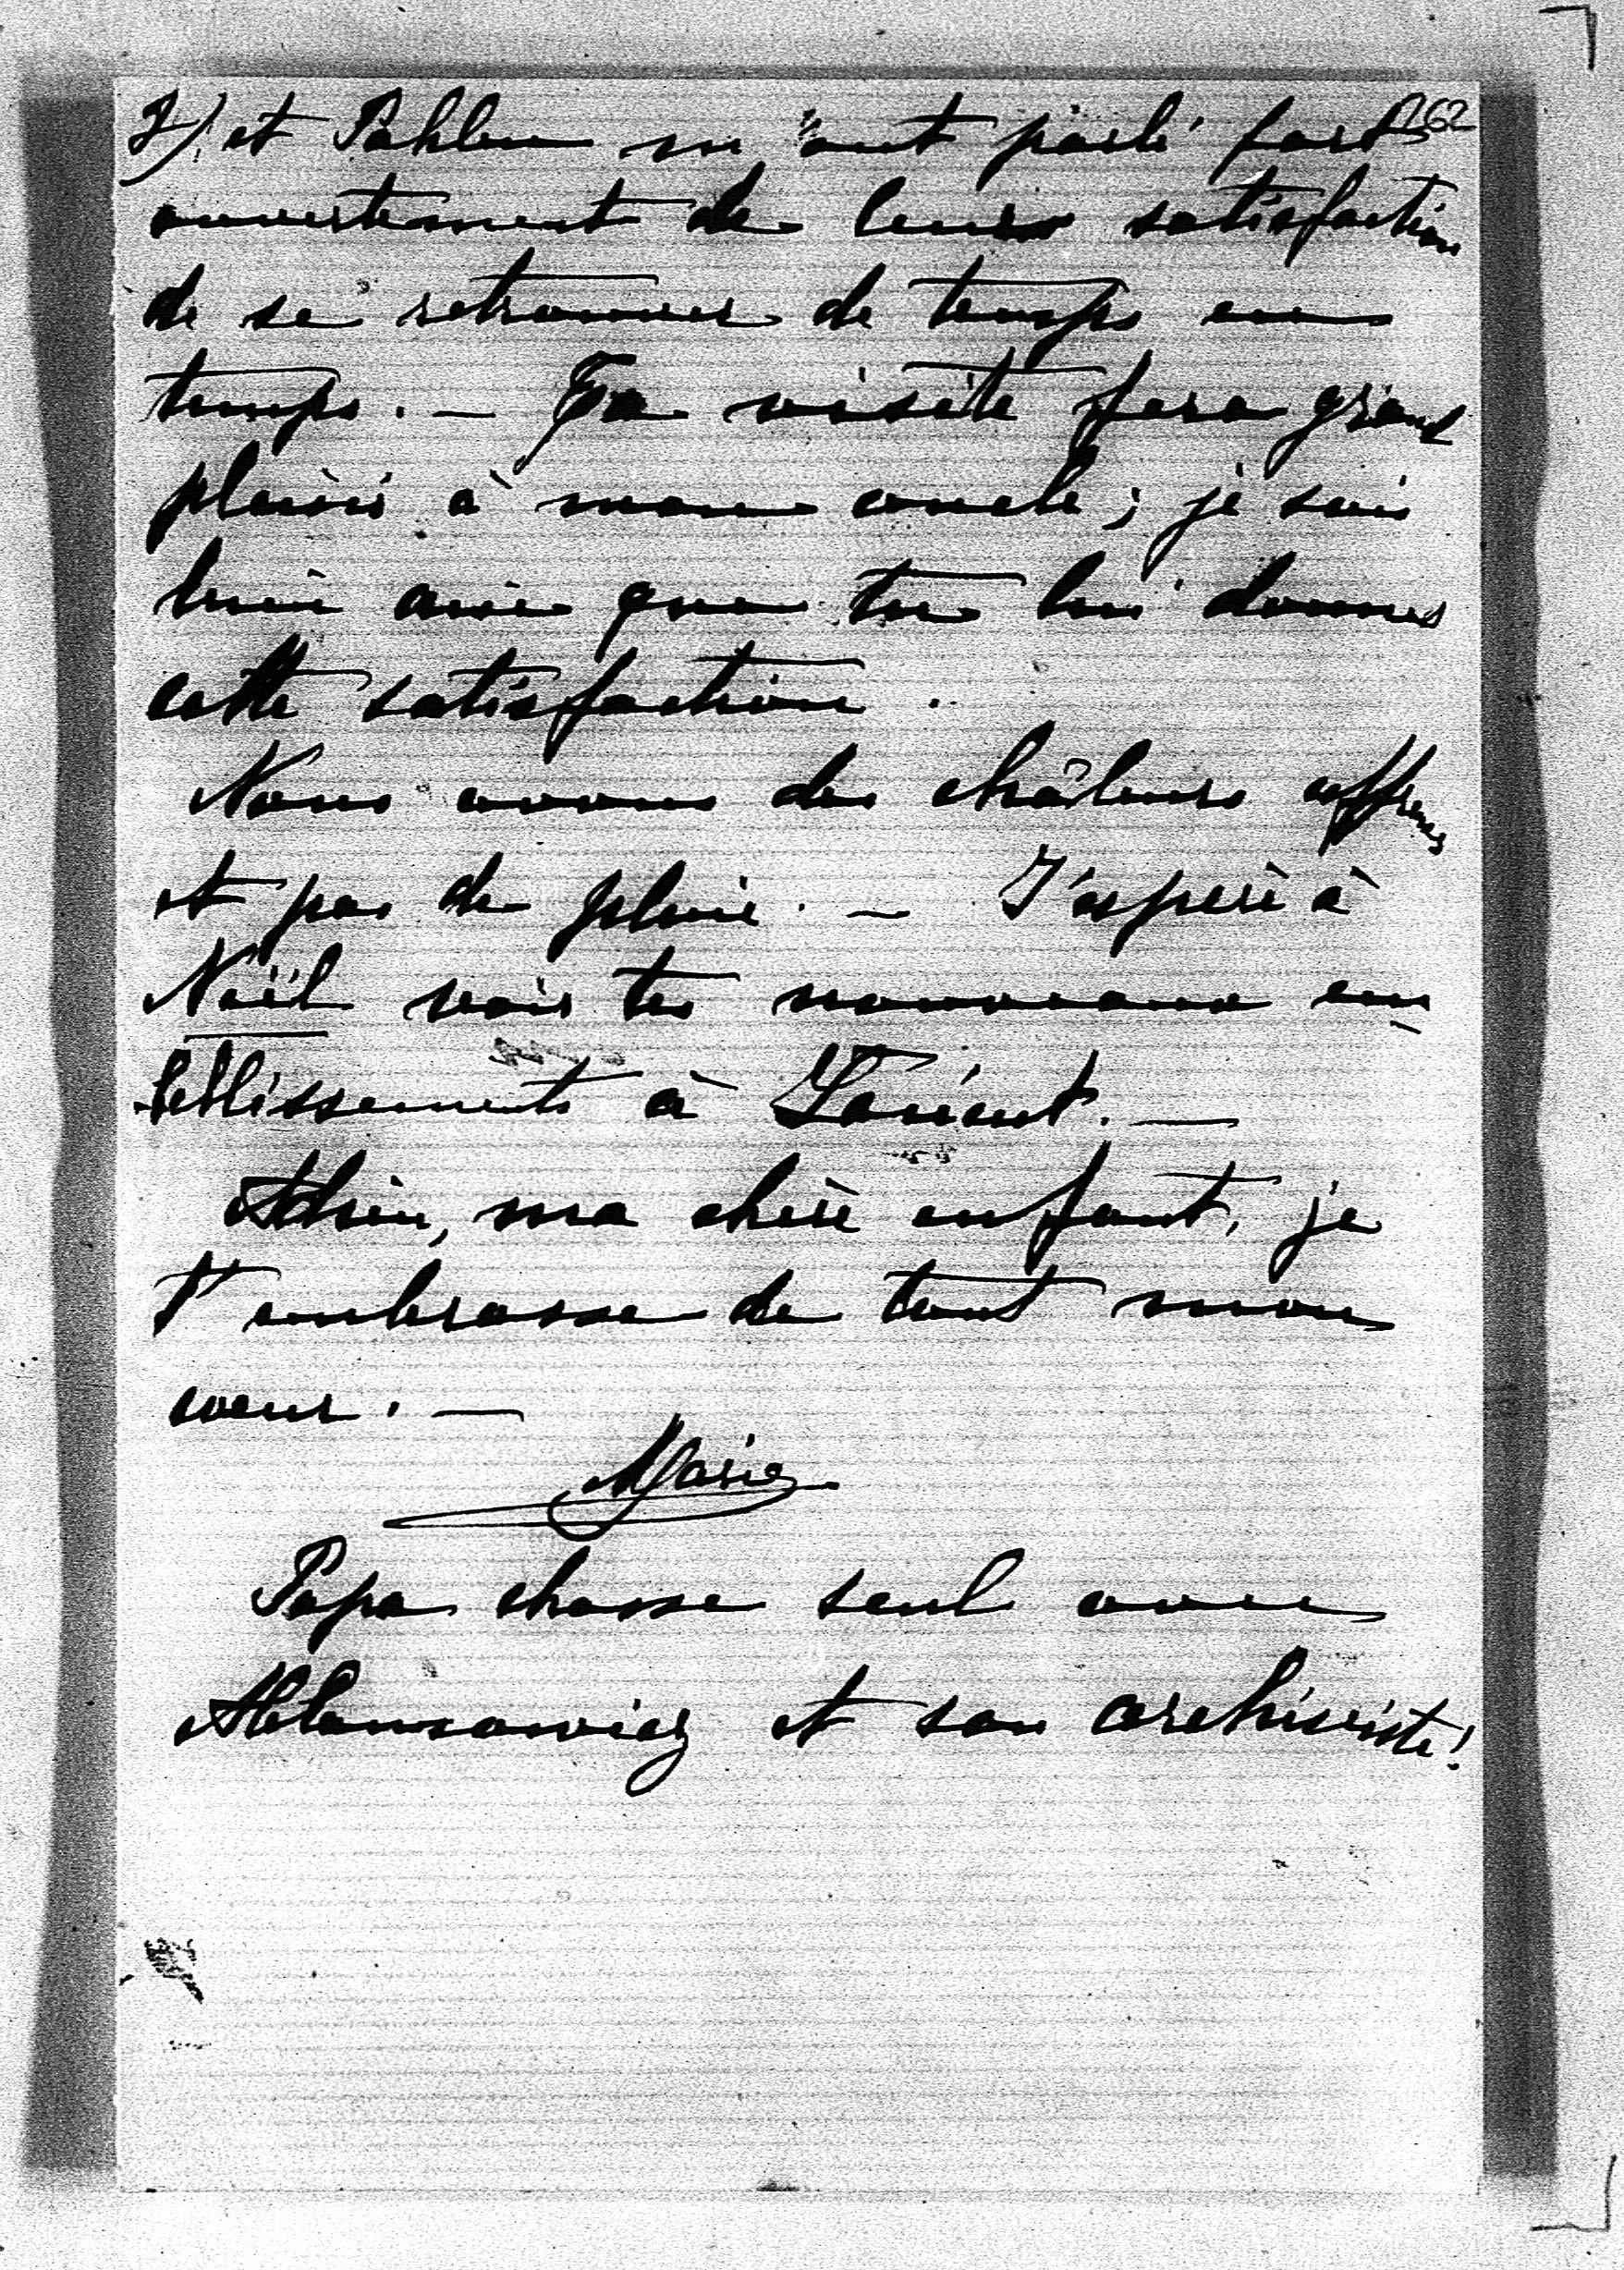 262
2) et Pahlen m'ont parlé fort
ouvertement de leurs satisfaction
de se retrouver de temps en
temps. — Ta visite fera grand
plaisir à mon oncle; je suis
bien aise que tu lui donnes
cette satisfaction.
Nous avons des châleurs affreuses
et pas de pluie. — J'espère à
Noël voir tes nouveaux em
bellissements à
Adieu, ma chère enfant, je
t'embrasse de tout mon
coeur. —
Marie
Papa chasse seul avec
et son archiviste!